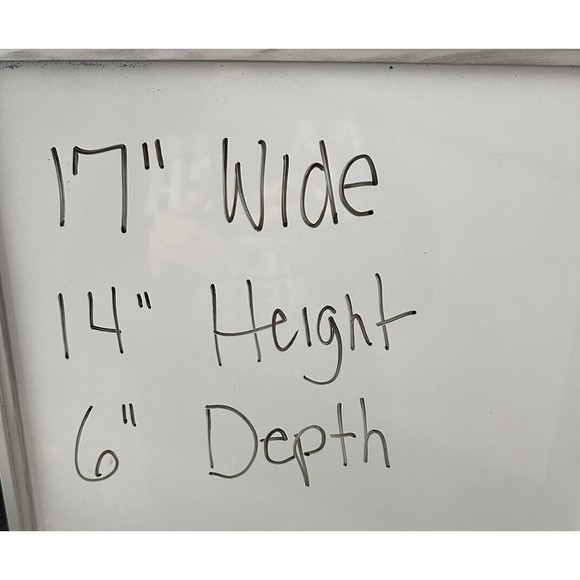 17" Wide
14" Height
6" Depth